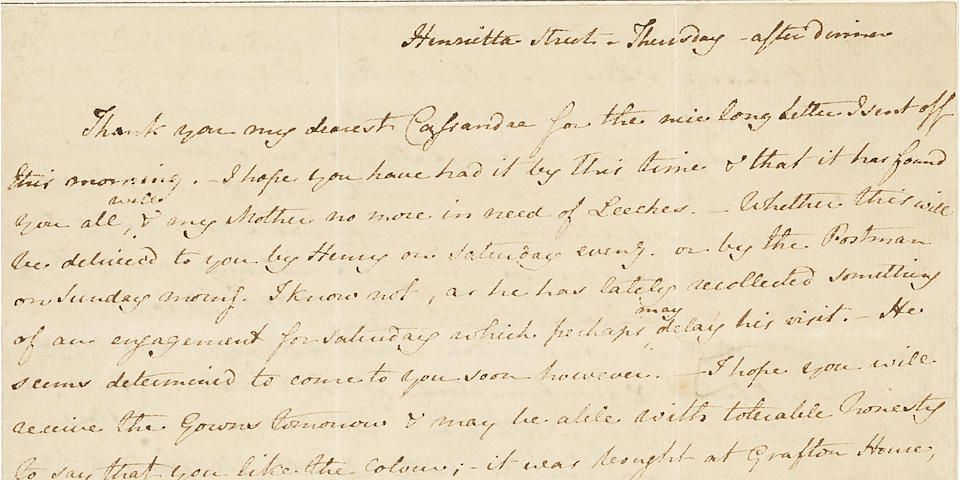 Henrietta Street - Thursday - after dinner
Thank you my dearest Cassandra for the nice long Letter I sent off
this morning. - I hope you have had it by this time & that it has found
you all well, & my Mother no more in need of Leeches. - Whether this will
be delivered to you by Henry on Saturday eveng. or by the Postman
on Sunday morng. I know not, as he has lately recollected something
of an engagement for Saturday which perhaps may delay his visit. - He
seems determined to come to you soon however. - I hope you will
receive the Gowns tomorrow & may be able with tolerable honesty
to say that you like the Colour; - it was bought at Grafton House,